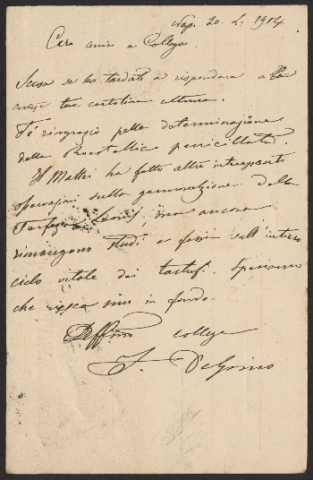 Nap. 20. 2. 1904
Caro amico e Collega.
Scusa se ho tardato a rispondere alla
tua cartolina ultima.
Ti ringrazio della determinazione
della penicillata.
Il Mattei ha fatto altre interessanti
osservazioni sulla gemmazione della
ma ancora
rimangono studi a farsi sull'intero
ciclo vitale dei tartufi. Speriamo
che riesca sino in fondo.
Aff.mo collega
F. Delpino